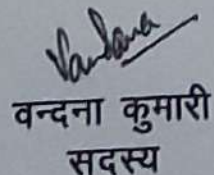 Vandana
वन्दना कुमारी
सदस्य